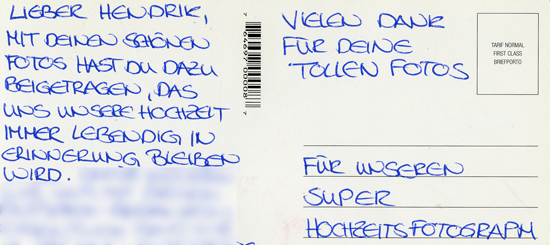 LIEBER HENDRIK,
MIT DEINEN SCHÖNEN
FOTOS HAST DU DAZU
BEIGETRAGEN, DAS
UNS UNSERE HOCHZEIT
IMMER LEBENDIG IN
ERINNERUNG BLEIBEN
WIRD.
7 64697 00008 7
VIELEN DANK
FÜR DEINE
TOLLEN FOTOS
TARIF NORMAL
FIRST CLASS
BRIEFPORTO
FÜR UNSEREN
SUPER
HOCHZEITSFOTOGRAPH